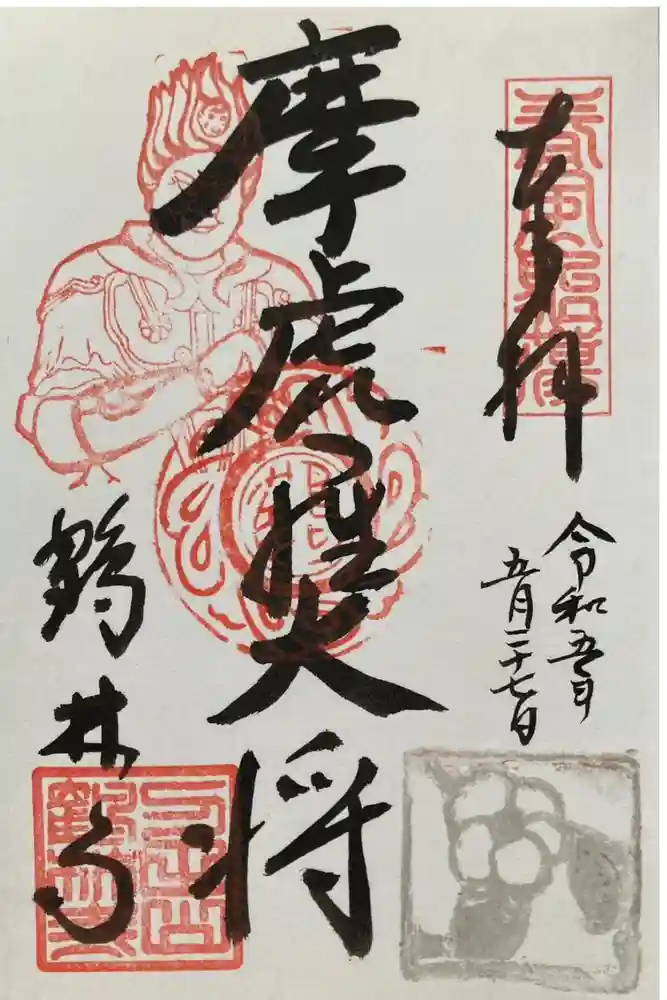 奉拝
令和五年
五月二十七日
摩虎羅大将
鶴林寺